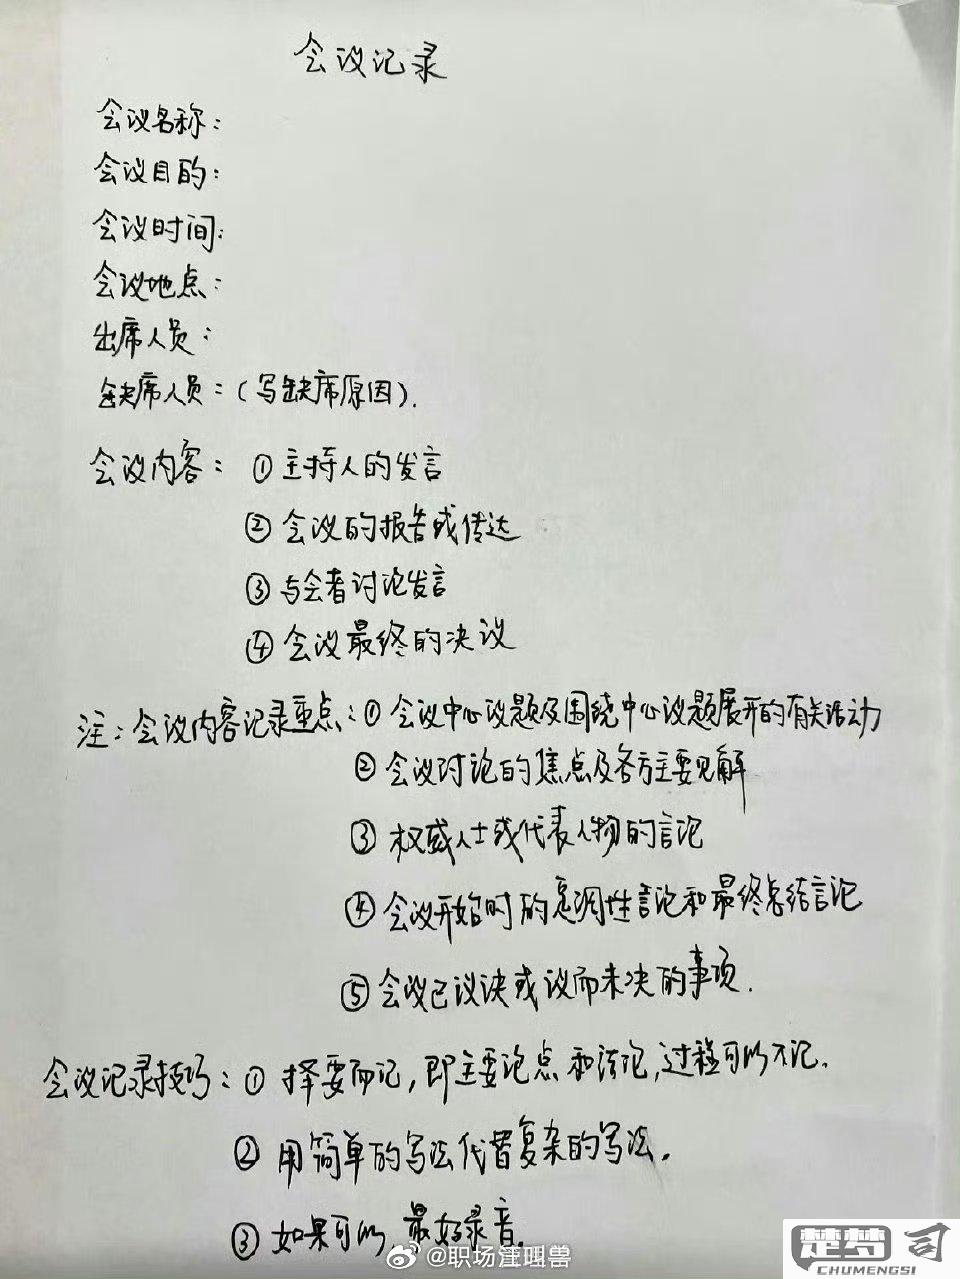 会议记录
会议名称:
会议目的:
会议时间:
会议地点:
出席人员:
缺席人员:(写缺席原因).
会议内容: ①主持人的发言
②会议的报告或传达
③与会者讨论发言
④会议最终的决议
注:会议内容记录重点:①会议中心议题及围绕中心议题展开的有关活动
②会议讨论的焦点及各方主要见解
③权威人士或代表人物的言论
④会议开始时的定调性言论和最终总结言论
⑤会议已议决或议而未决的事项.
会议记录技巧:①择要而记,即主要论点和结论,过程可以不记.
②用简单的写法代替复杂的写法.
③如果可以 最好录音.
@职场汪哩兽
楚梦司
CHUMENGSI